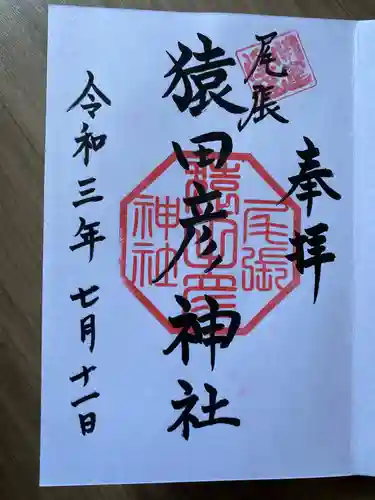 奉拝
尾張
猿田彦神社
令和三年七月十一日
尾張
猿田彦
神社